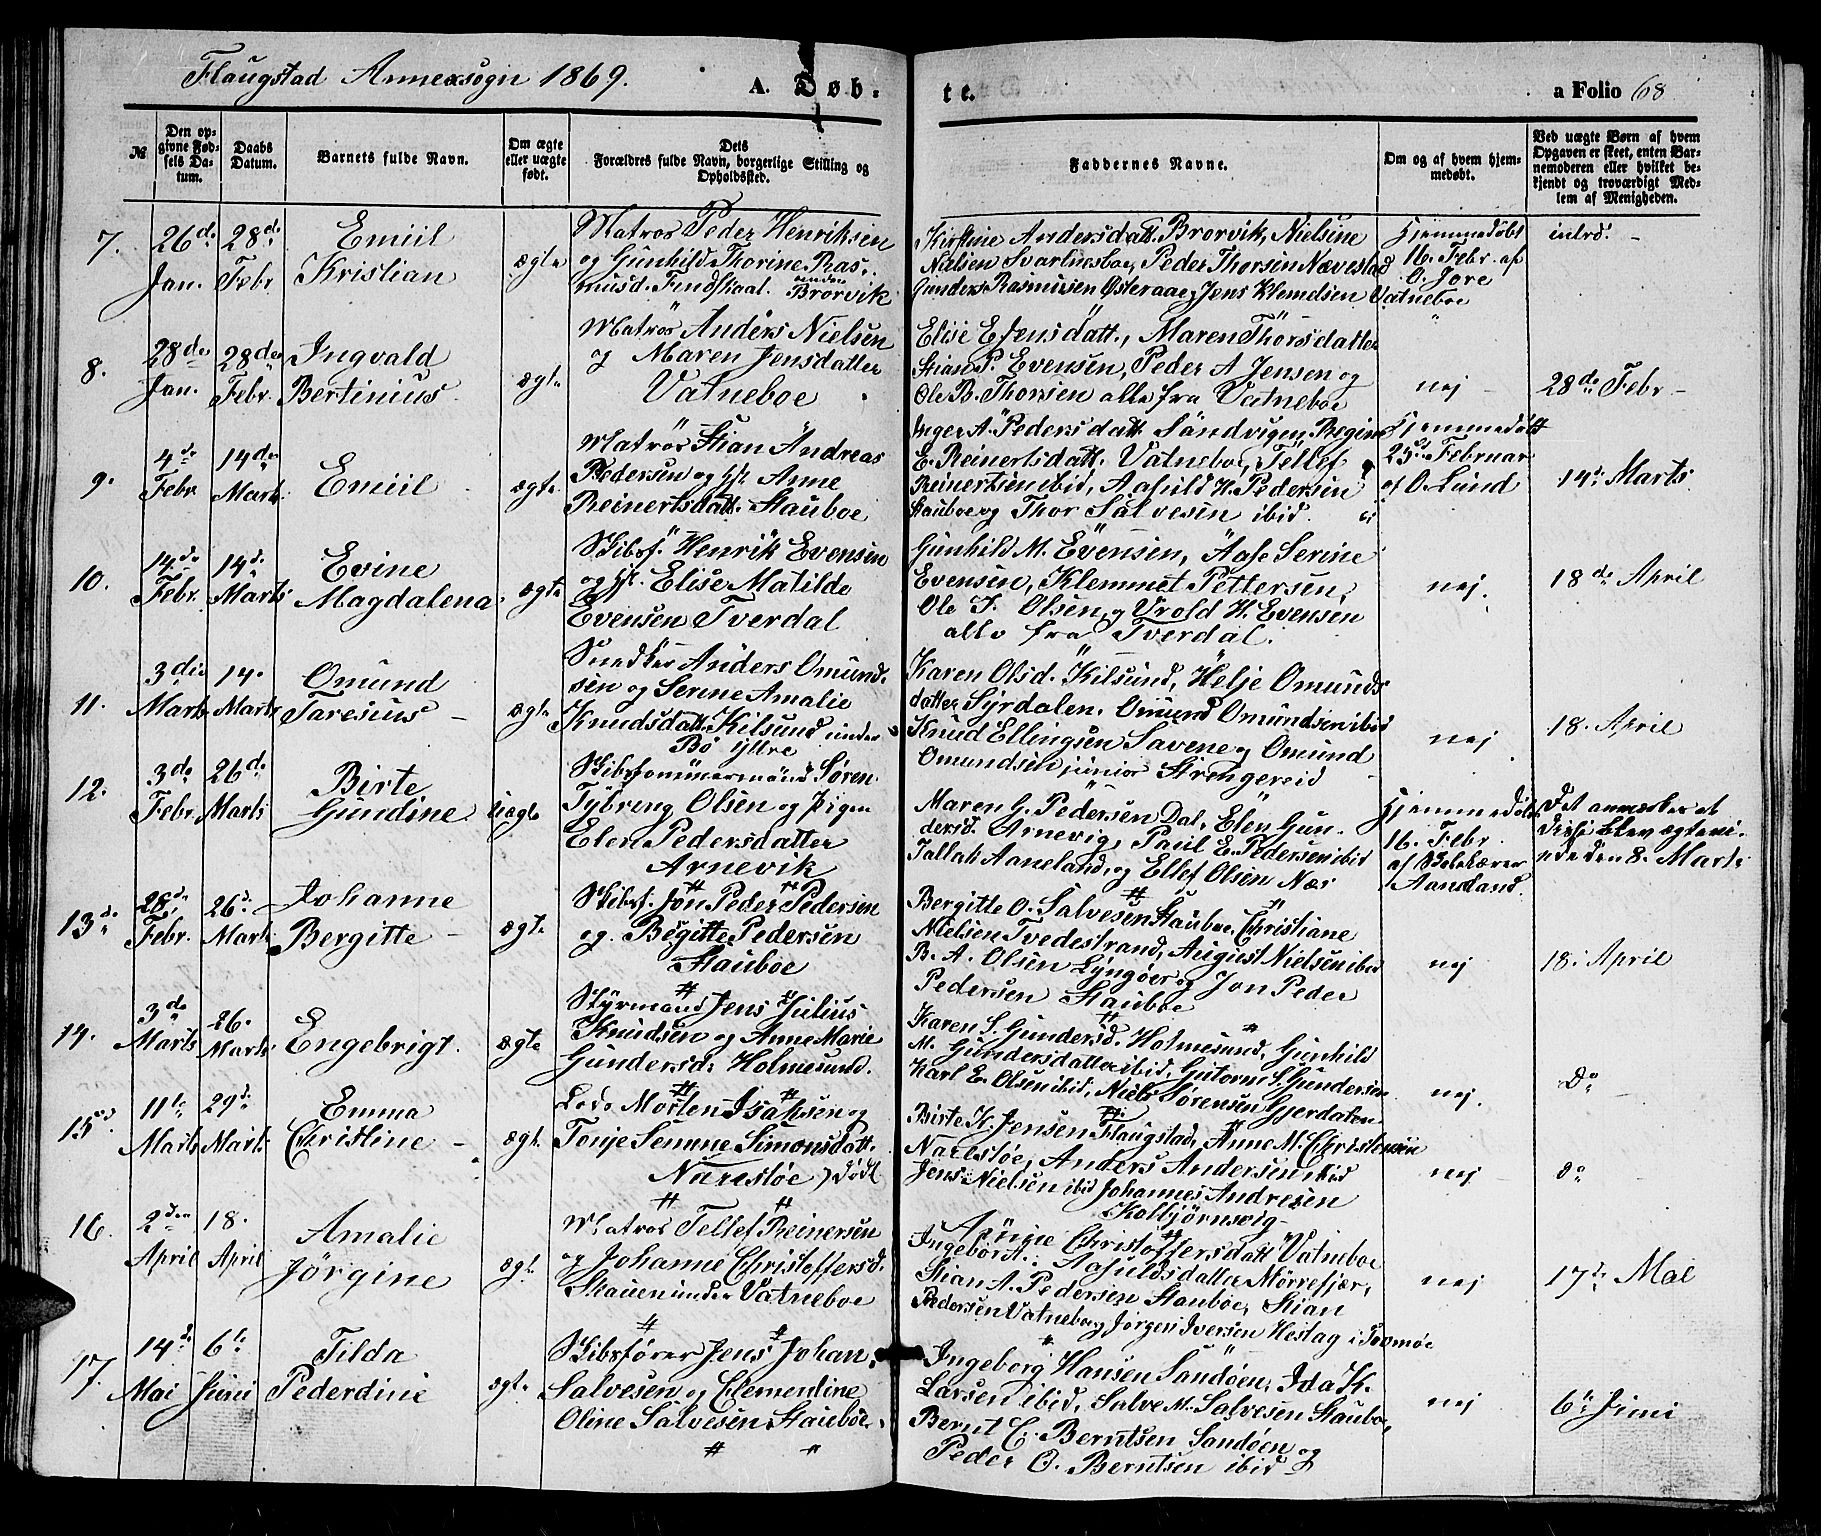 Flaugstad Annexsogn 1869.
A. Døb-
te.
a Folio 68
№
Den op-
givne Fød-
sels Da-
tum.
Daabs
Datum.
Barnets fulde Navn.
Om ægte
eller uægte
født.
Dets
Forældres fulde Navn, borgerlige Stilling og
Opholdssted.
Faddernes Navne.
Om og af hvem hjem-
medøbt.
Ved uægte Børn af hvem
Opgaven er skeet, enten Bar-
nemoderen eller hvilket be-
kjendt og troværdigt Med-
lem af Menigheden.
7.
26de
Jan.
28de
Febr
Emiil
Kristian
ægte
Matros Peder Henriksen
og Gunhild Thorine Ras-
musd. Findskaal. under
Brorvik
Kirstine Andersdatt. Brorvik, Nielsine
Nielsen Svartnesboe, Peder Thorsen Nævestad
Gunders Rasmusen Østeraae, Jens Klemdsen Vatneboe
Hjemmedøbt
16. Febr. af
O. Jore
intrd. -
8.
28de
Jan.
28de
Febr.
Ingvald
Bertinius
ægte
Matros Anders Nielsen
og Maren Jensdatter
Vatneboe
Elise E Jensdatt., Maren Thorsdatter
Stian P. Evensen, Peder A Jensen og
Ole B. Thorsen alle fra Vatneboe
nej -
28de Febr -
9.
4de
Febr
14de
Marts
Emiil
ægte
Matros Stian Andreas
Pedersen og Hst. Anne
Reinertsdatt. Stauboe
Inger A. Pedersdatt. Sandvigen, Regine
E. Reinertsdatt. Vatneboe, Tellef
Reinertsen ibid, Aasuld H. Pedersen
Stauboe og Thor Salvesen ibid.
Hjemmedøbt
25de Februar
af O. Lund
14de Marts
10.
14de
Febr.
14de
Marts
Evine
Magdalena
ægte
Skibsf. Henrik Evensen
og Hst. Elise Matilde
Evensen Tverdal
Gunhild M. Evensen, Aase Serine
Evensen, Klemmet Pettersen,
Ole T. Olsen, og Vrold H. Evensen
alle fra Tverdal.
nej.
18de April
11.
3die
Marts
14.
Marts
Omund
Taresius -
ægte
Snedker Anders Omund-
sen og Serine Amalie
Knudsdatt. Kilsund under
Bø ytre
Karen Olsd. Kilsund, Helje Omunds
datter Syrdalen. Omund Omundsen ibid
Knud Ellingsen Savene og Omund
Omundsen junior Strengereid
nej
18. April
12.
3de
Febr.
26de
Marts
Birte
Gundine
uægte
Skibstømmermand Søren
Tybreng Olsen og Pigen
Elen Pedersdatter
Arnevik
Maren G. Pedersen Dal, Elen Gun-
dersd. Arnevig, Paul E. Pedersen ibid
Tallak Aaneland, og Ellef Olsen Næs
Hjemmedøbt
16. Febr
af
Aaneland.
Det anmerkes at
disse blev
den 8. Marts
13de
28de
Febr.
26de
Marts
Johanne
Bergitte -
ægte
Skibsf. Jon Peder Pedersen
og. Begitte Pedersen
Stauboe
Bergitte O. Salvesen Stauboe, Christiane
Nielsen Tvedestrand, August Nielsen ibid
B. A. Olsen Lyngøer og Jon Peder
Pedersen Stauboe
nej
18. April
14.
3de
Marts
26.
Marts
Engebrigt.
ægte
Styrmand Jens Julius
Knudsen og Anne Marie
Gundersd. Holmesund.
Karen S. Gundersd. Holmesund, Gunhild
M. Gundersdatter ibid, Gutorm S. Gundersen
Karl E. Olsen ibid, Niels Sørensen Gjerdalen
nej.
Do
15de
11te
Marts
29de
Marts
Emma
Christine -
ægt.
Lods Morten Isaksen og
Tonje Semme Simonsdatt.
Narestøe) død
Birte K. Jensen Flaugstad, Anne M. Christensen
Narestøe, Anders Andersen ibid
Jens Nielsen ibid Johannes Andresen
Kolbjørnsvig
nej
do
16.
2den
April
18.
April
Amalie
Jørgine
ægt.
Matros Tellef Reinersen
og Johanne Christoffersd.
Stauen under Vatneboe
Christoffersdatt Vatneboe
Ingebor A. Aasuldsdatter Mørrefjær,
Stian A. Pedersen Stauboe, Stian
Pedersen Vatneboe og Jorgen Iversen Hestag i
nej
17de Mai
17.
14de
Mai
6te
Juni
Tilda
Pederdine
ægte
Skibsfører Jens Johan
Salvesen og Clementine
Oline Salvesen Stauboe.
Ingeborg Hansen Sandøen, Ida K.
Larsen ibid, Salve M. Salvesen Stauboe,
Bernt C. Berntsen Sandøen og
Peder O. Berntsen ibid
nej
6te Juni